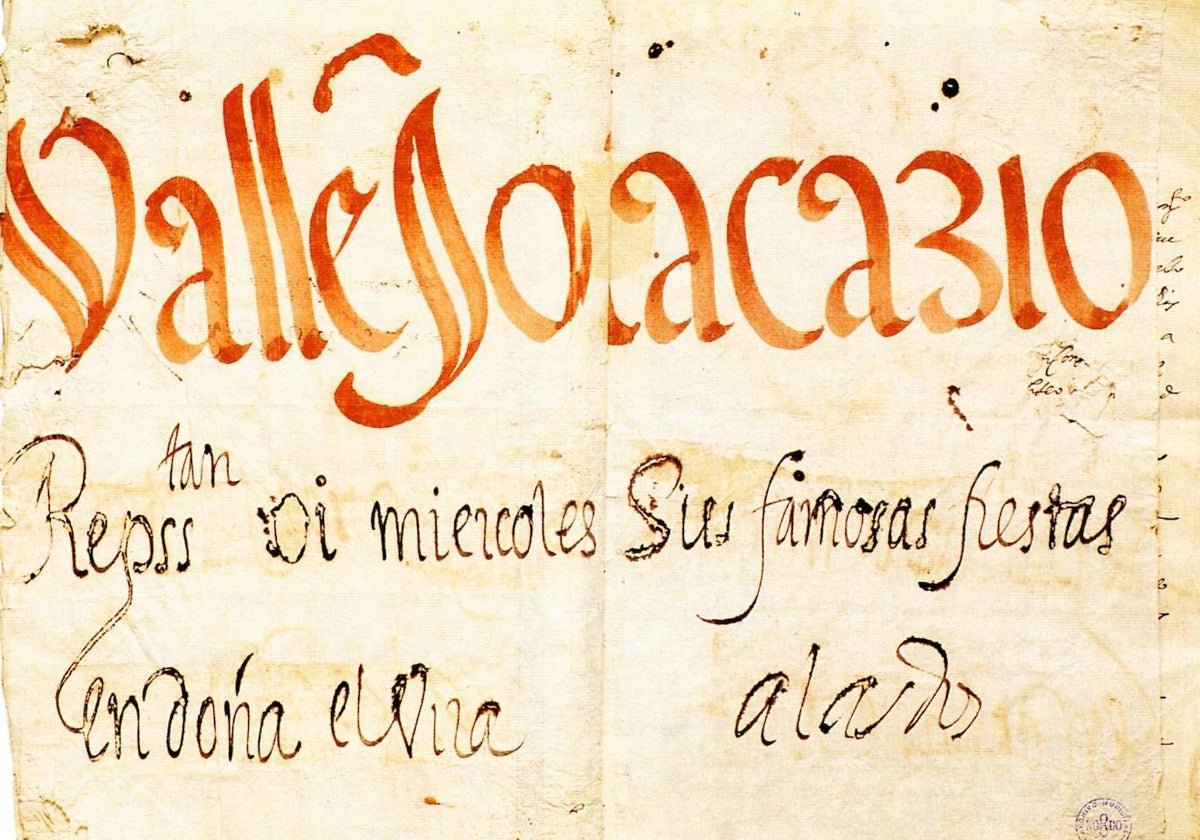 Vallejo acazio
tan
Repss oi miercoles Sus famosas fiestas
en doña elvira a las dos